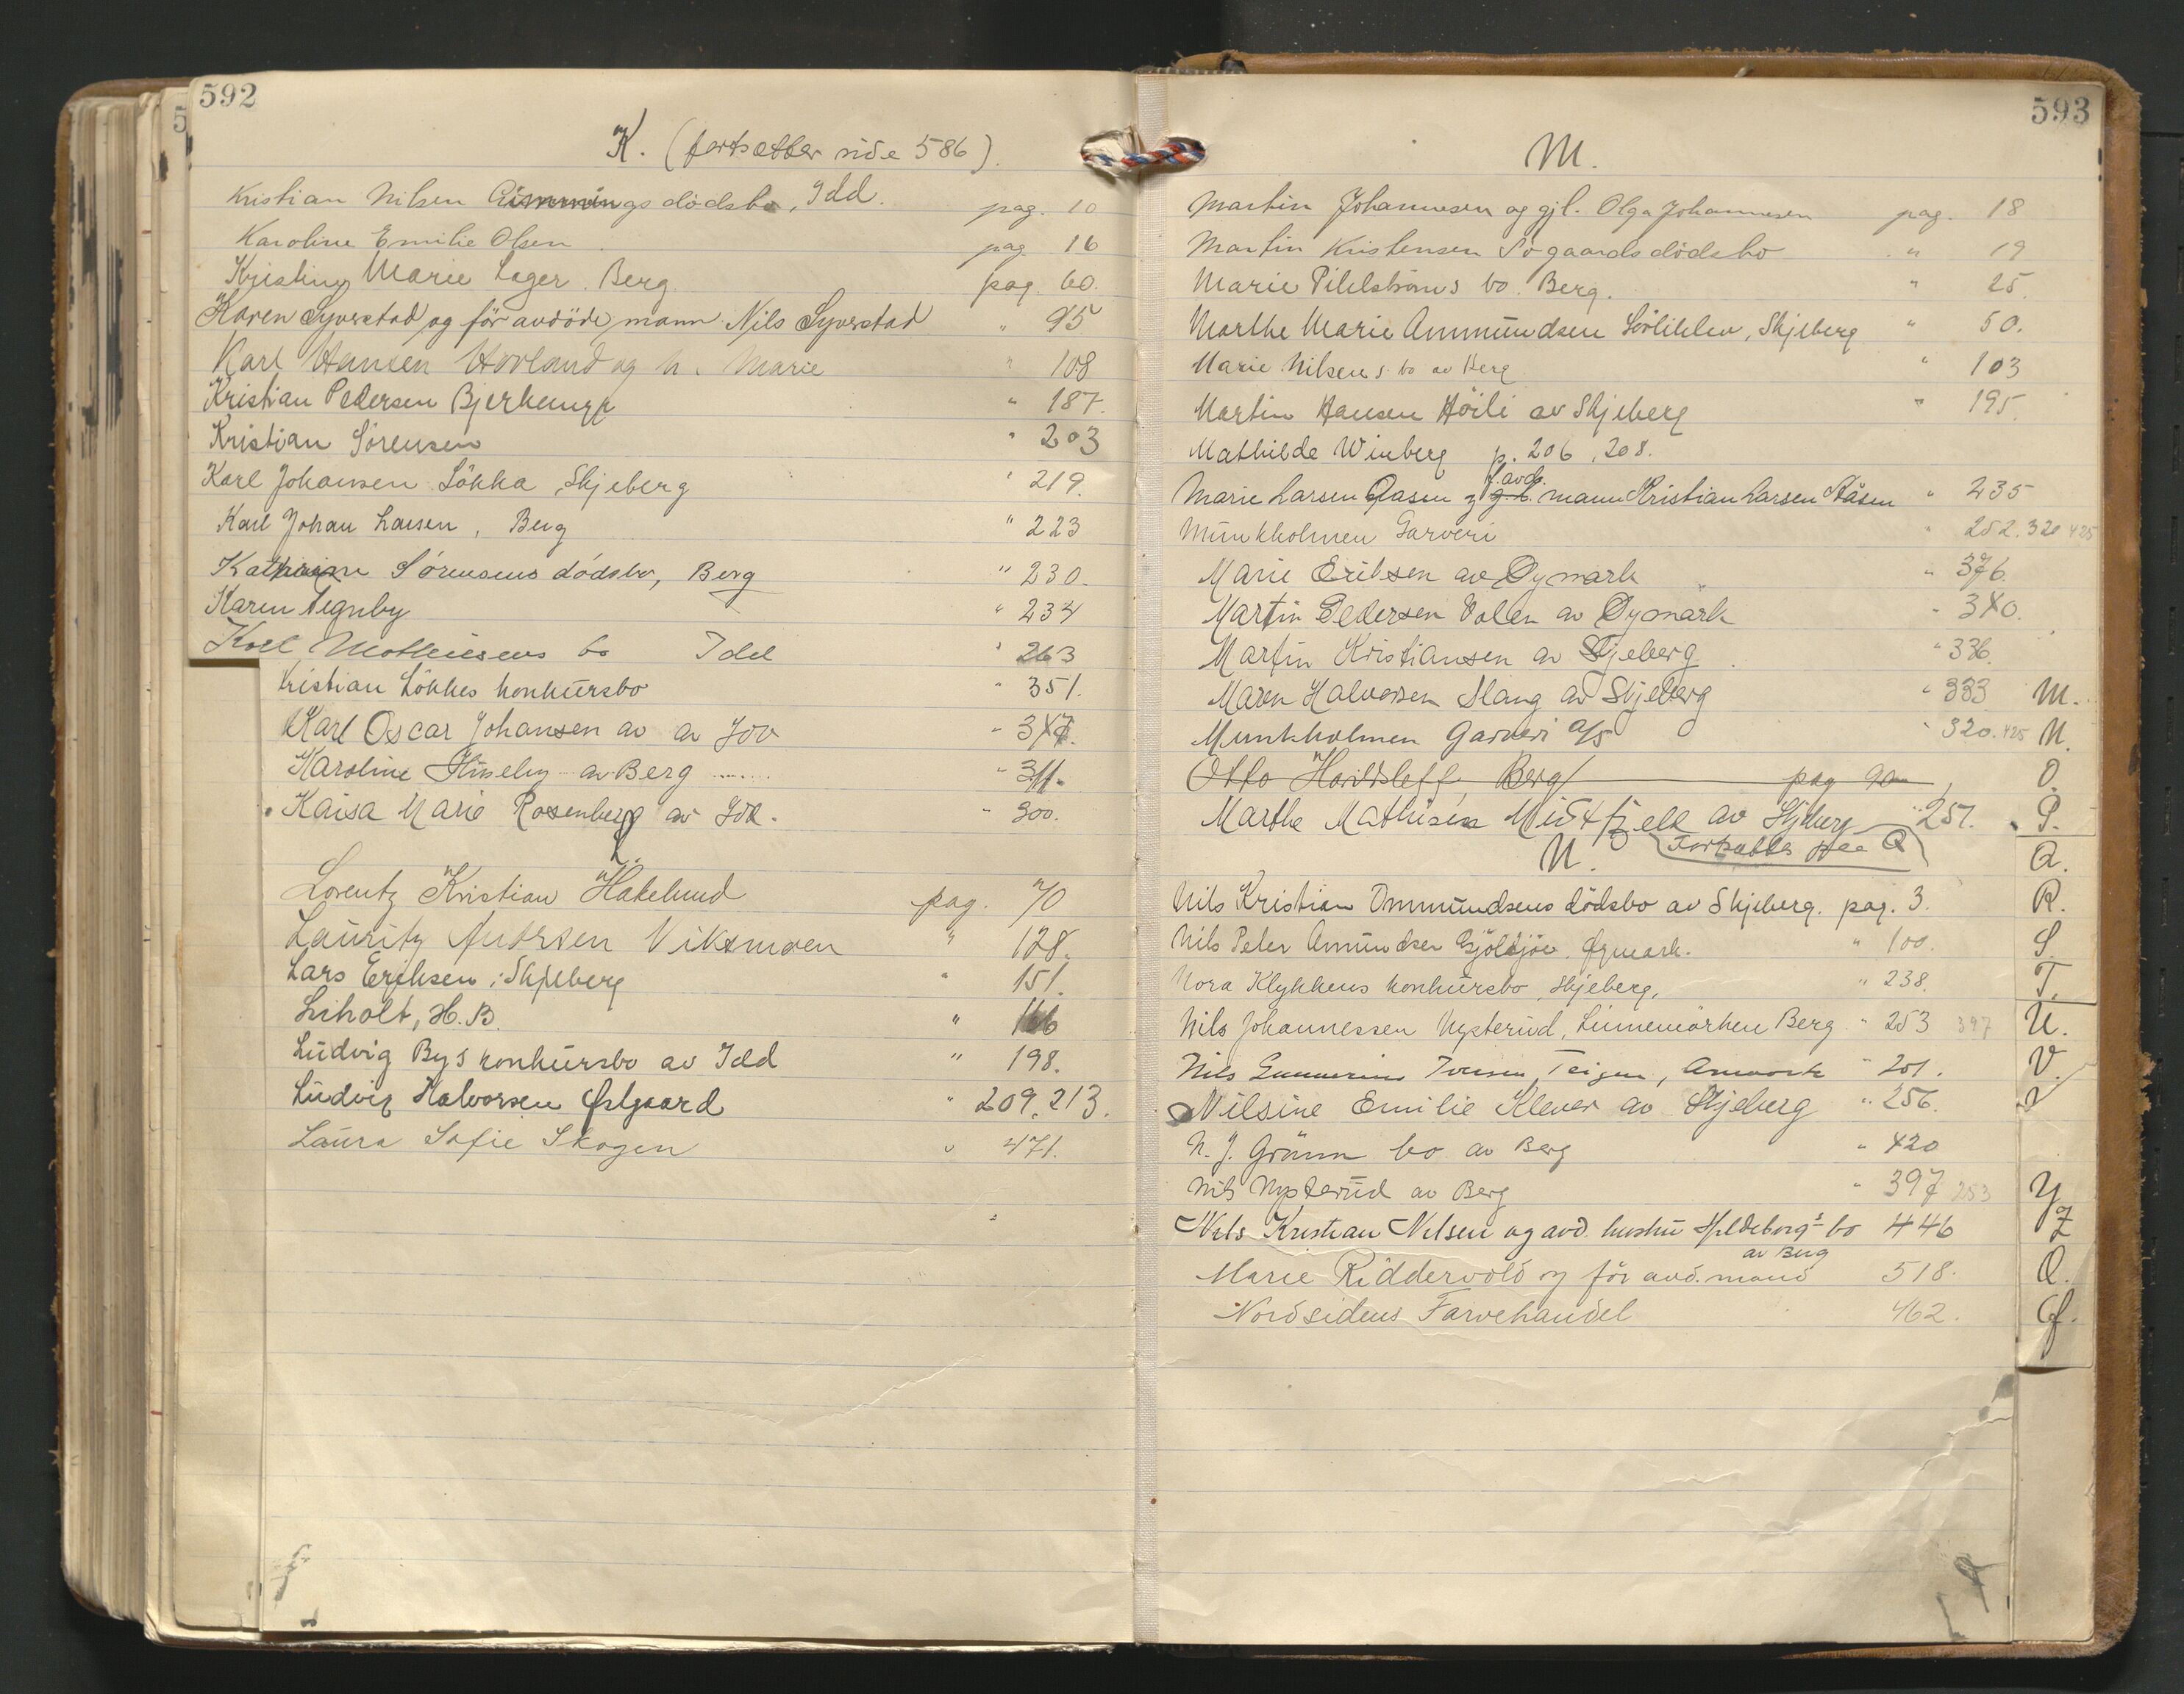 592
K. (fortsætter side 586).
Kristian Nilsen dödsbo, Idd. pag. 10
Karoline Emilie Olsen. pag. 16
Kristine Marie Lager. Berg pag. 60.
Karen Syverstad og för avdöde mann Nils Syverstad " 95
Karl Hansen Hovland og h. Marie " 108
Kristian Pedersen Bjerkeng " 187.
Kristian Sörensen " 203
Karl Johansen Lökka, Skjeberg " 219.
Karl Johan Larsen, Berg " 223
Kathrine Sörensens dödsbo, Berg " 230.
Karen Tegnby " 234
Karl Mathiesens bo Idd " 263
Kristian Lökkes konkursbo " 351.
Karl Oscar Johansen av av Idd "
Karoline av Berg " 311.
Kaisa Marie Rosenberg av Idd. " 300.
L.
Lorentz Kristian Hakelund pag. 70
Lauritz Andersen Viksmoen " 128.
Lars Eriksen, Skjeberg " 151.
Liholt, H. B. " 166
Ludvig Bys konkursbo av Idd " 198.
Ludvig Halvorsen Østgaard " 209, 213.
Laura Sofie Skogen " 471.
593
M.
Martin Johannesen og gjl. Olga Johannesen pag. 18
Martin Kristensen Sogaards dödsbo " 19
Marie Pihlströms bo. Berg. " 25.
Marthe Marie Ammundsen Söliklev, Skjeberg " 50.
Marie Nilsens bo av Berg " 103
Martin Hansen Höili av Skjeberg " 195.
Mathilde Winberg p. 206, 208.
f. avd.
Marie Larsen Aasen og g. l. mann Kristian Larsen Aasen " 235
Munkholmen Garveri " 252. 320 425
Marie Eriksen av Øymark " 376.
Martin Pedersen Volen av Øymark " 340.
Martin Kristiansen av Skjeberg " 336.
Maren Halvorsen Slang av Skjeberg " 333
Munkholmen Garveri A/S " 320. 425
Otto Havidsleff, Berg pag 90
Marthe Mathisen Midtfjell av Skjeberg " 257.
N. Fortsættes paa Q
Nils Kristian Ommundsens dödsbo av Skjeberg. pag. 3.
Nils Peter Amundsen Gjöldjöv. Øymark. " 100.
Nora Klykkens konkursbo, Skjeberg, " 238.
Nils Johannessen Nysterud, Linnemörken Berg " 253 397
Nils Gunnerius Iversen, Teigen, Aremark " 201.
Nilsine Emilie Klever av Skjeberg " 256.
N. J. Grünn bo av Berg " 420
Nils Nysterud av Berg " 397 253
Nils Kristian Nilsen og avd. hustru Hildeborgs bo 446
av Berg
Marie Riddervold og för avd. mand 518.
Nordsidens Farvehandel 462.
M.
N.
O.
P.
Q.
R.
S.
T.
U.
V.
Y
Z
Ø.